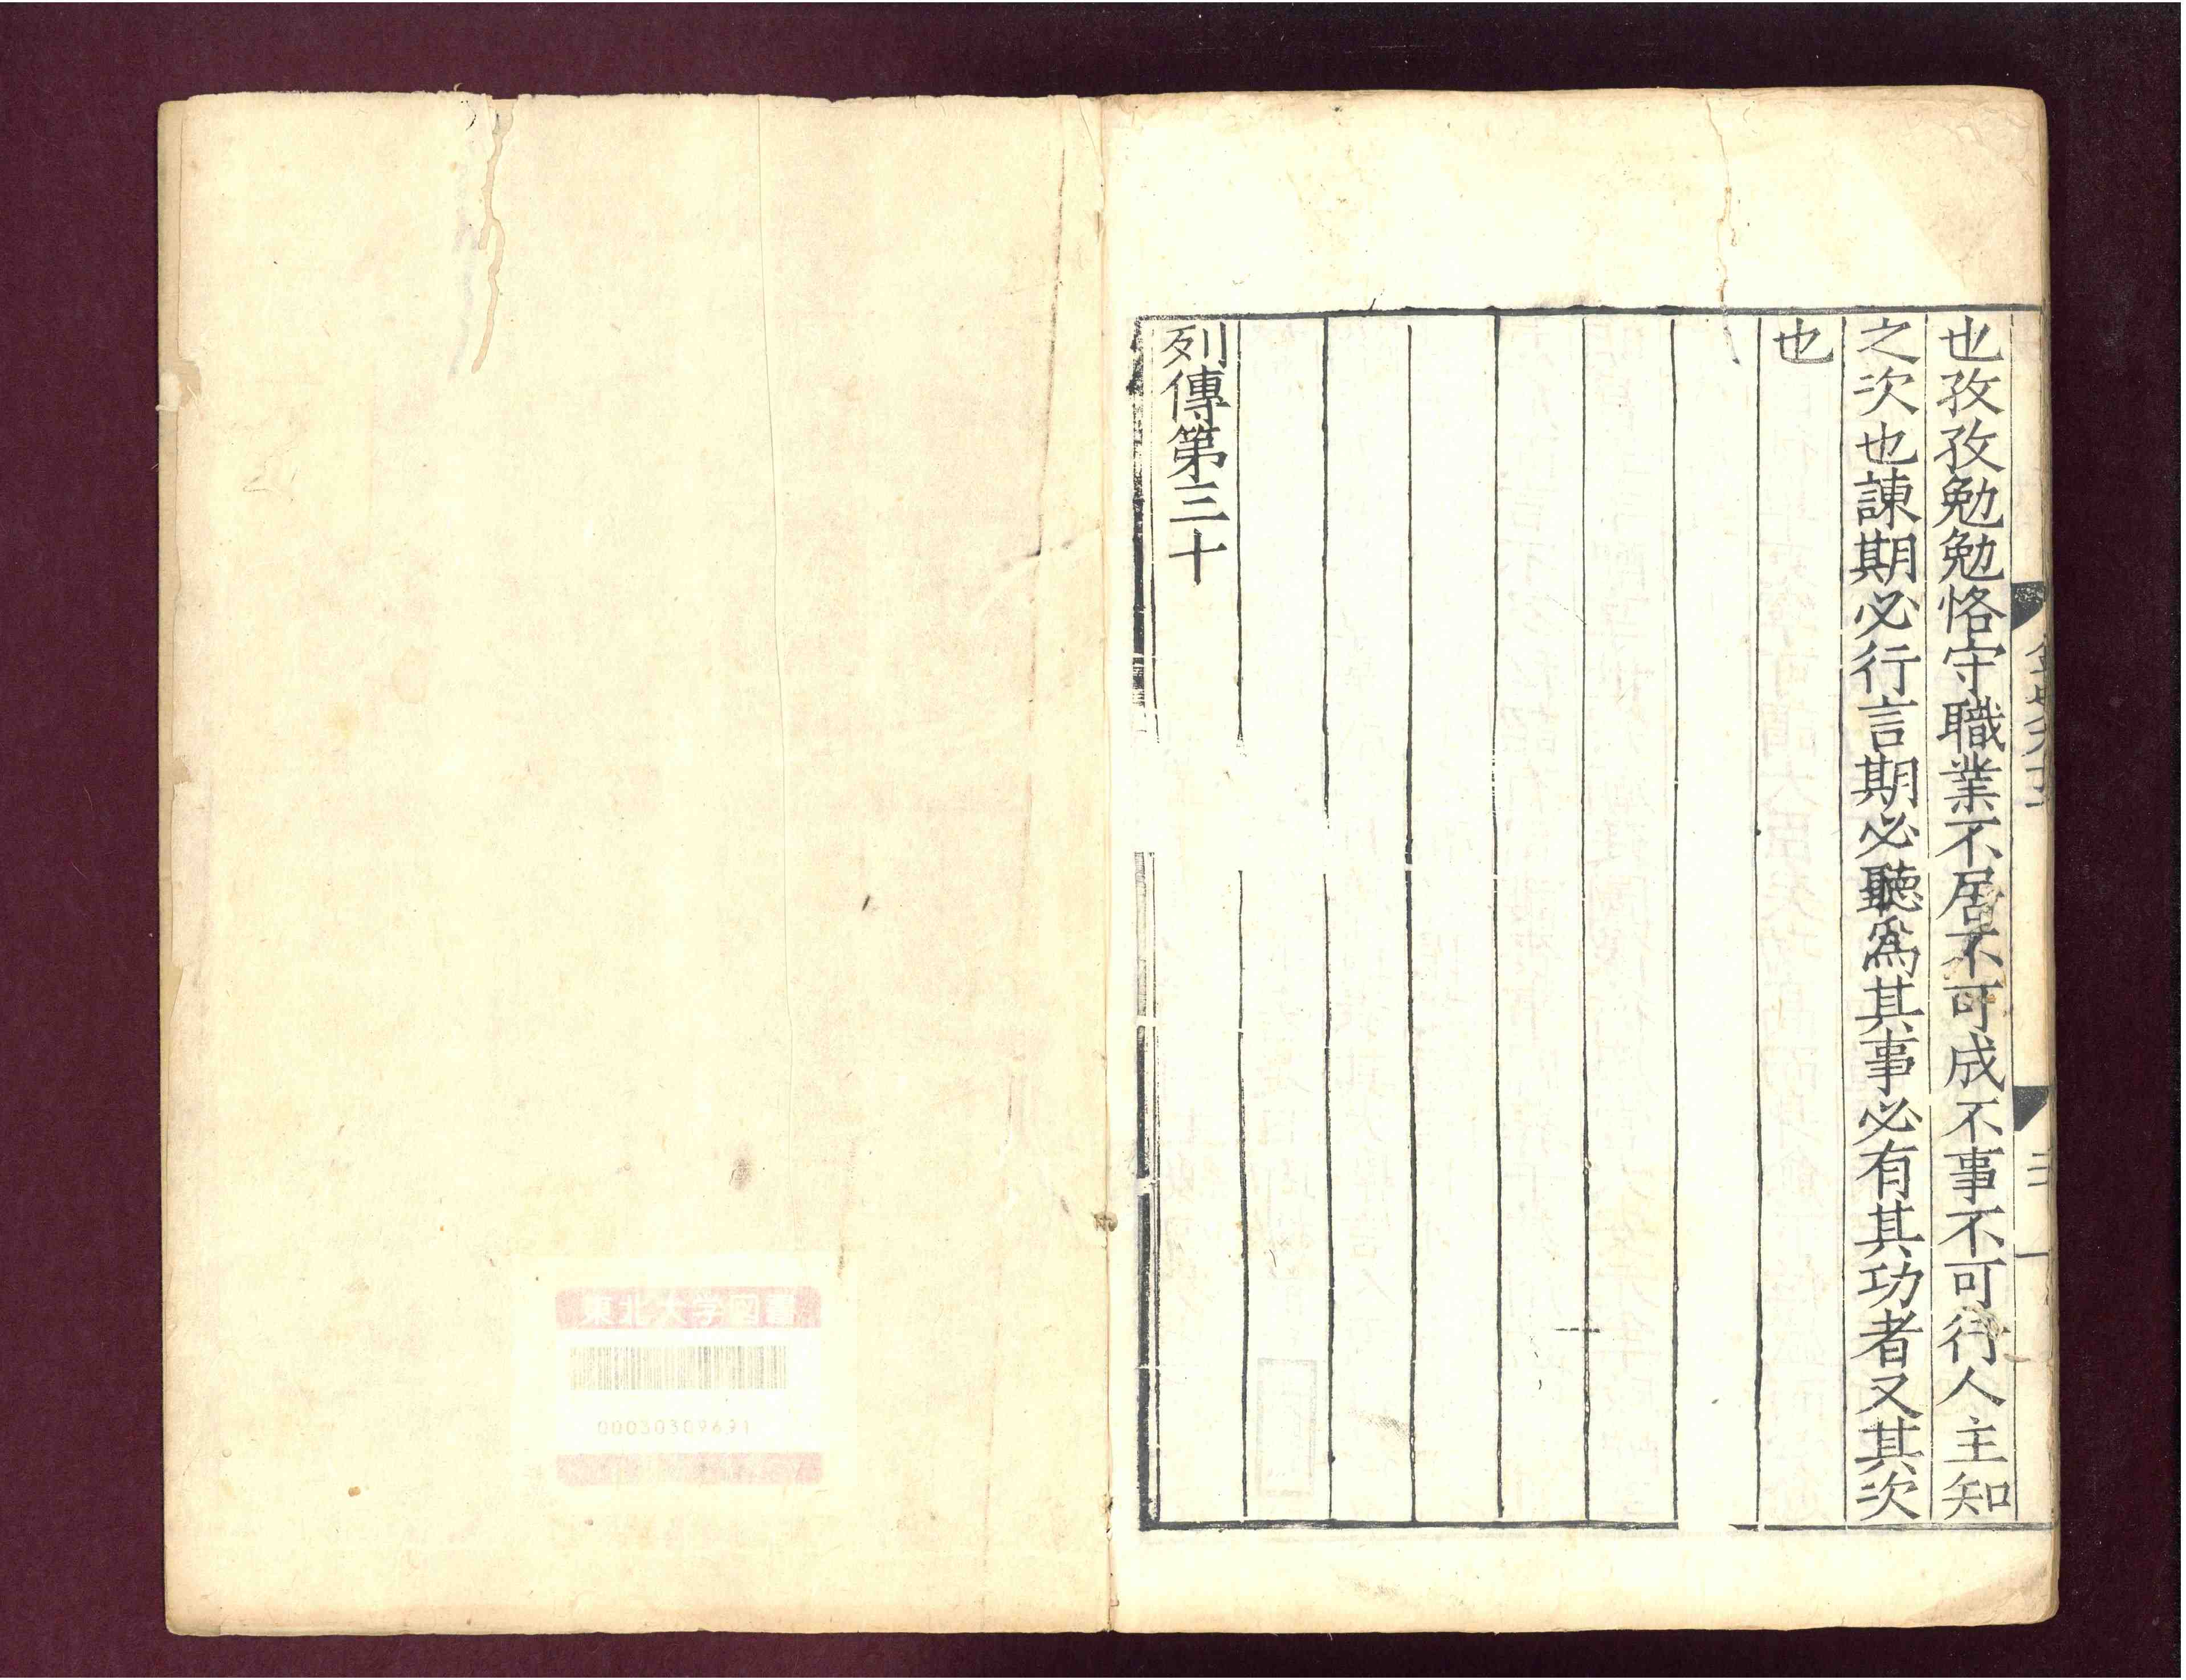 也孜孜勉勉恪守職業不居不可成不事不可行人主知
之次也諫期必行言期必聽為其事必有其功者又其次
也
列傳第三十
東北大学図書
00030309691